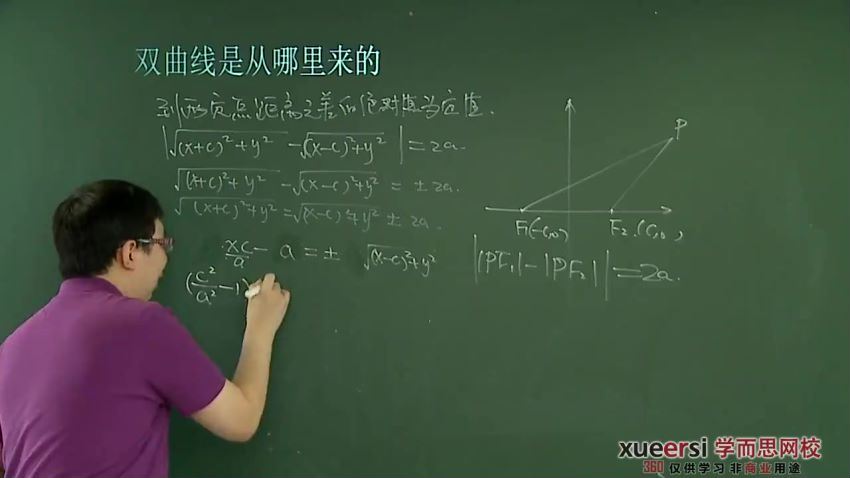 双曲线是从哪里来的
到两定点距离之差的绝对值为定值.
|√(x+c)²+y² - √(x-c)²+y²| = 2a.
√(x+c)²+y² - √(x-c)²+y² = ±2a.
√(x+c)²+y² = √(x-c)²+y² ± 2a.
xc/a - a = ± √(x-c)²+y²
(c²/a² - 1)
P
F₁(-c,0) F₂(c,0)
||PF₁|-|PF₂|| = 2a.
xueersi 学而思网校
360 仅供学习 非商业用途